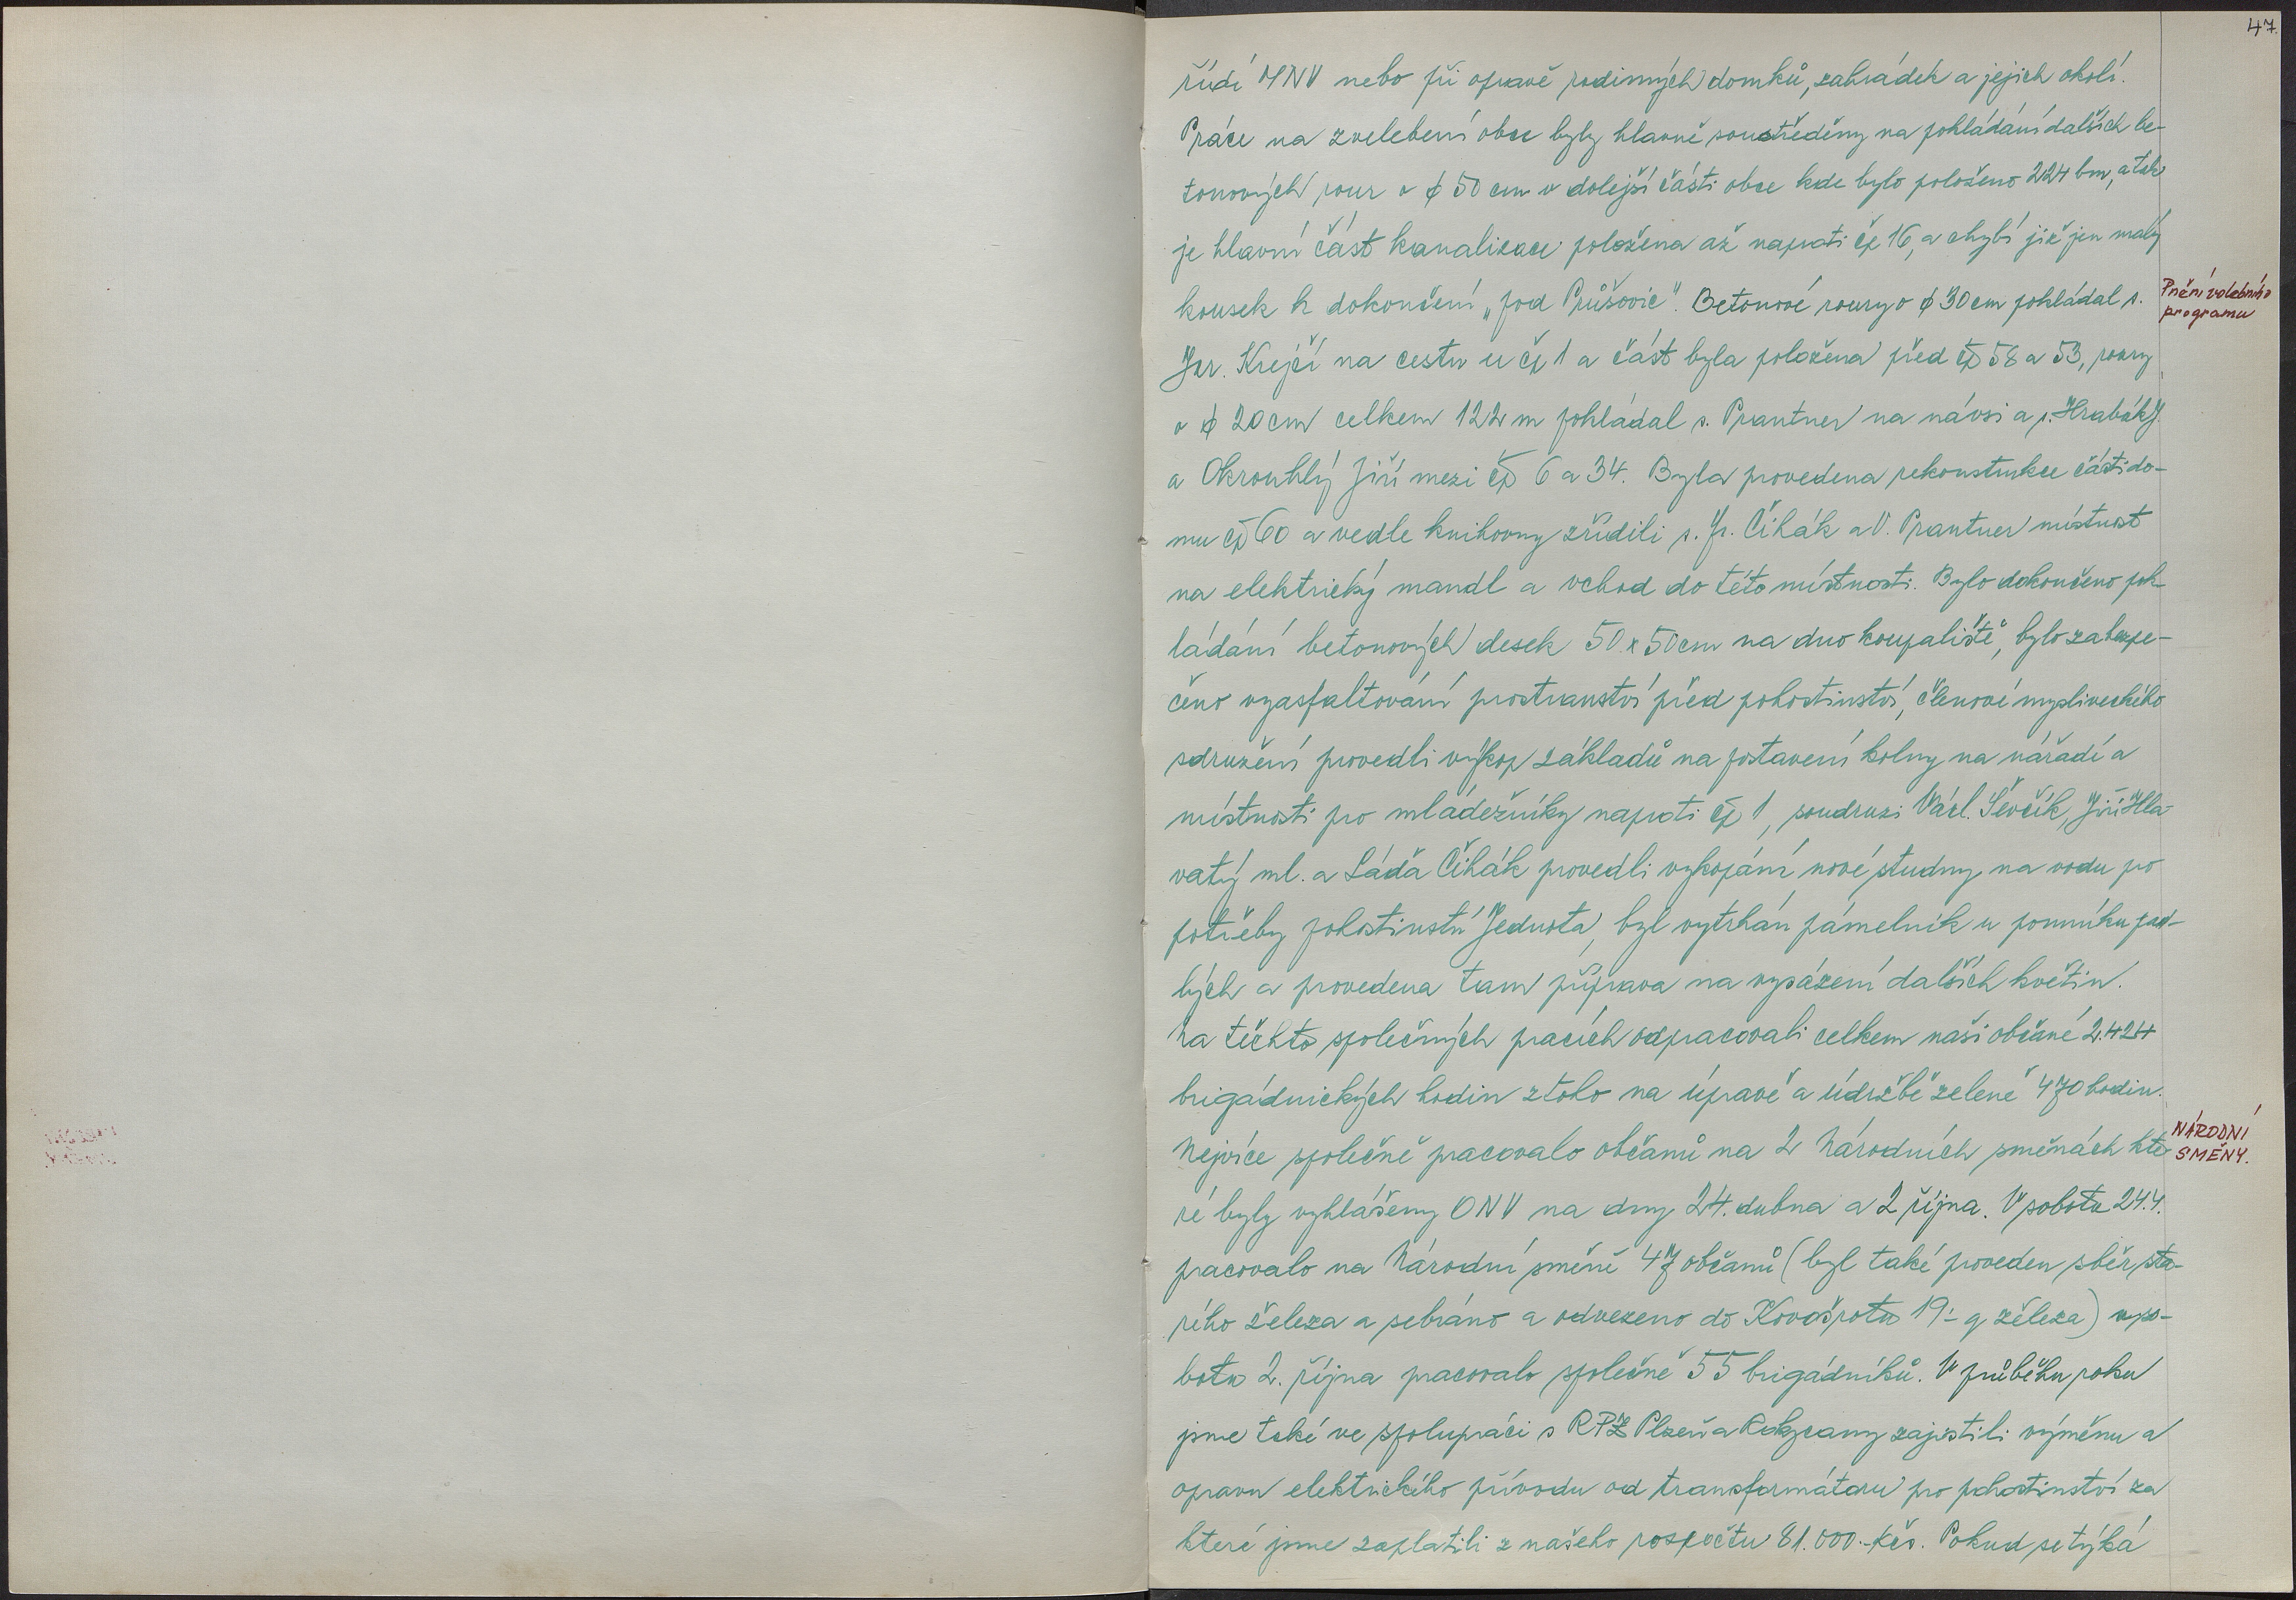 47.
řídí MNV nebo při opravě rodinných domků, zahrádek a jejich okolí.
Práce na zvelebení obce byly hlavně soustředěny na pokládání dalších be-
tonových rour o ϕ 50 cm v dolejší části obce kde bylo položeno 224 bm, a tak
je hlavní část kanalizace položena až naproti čp 16, a chybí již jen malý
kousek k dokončení „pod Průšovic". Betonové roury o ϕ 30 cm pohládal s.
Jar. Krejčí na cestu u čp 1 a část byla položena před čp 58 a 53, roury
o ϕ 20 cm celkem 122 m pohládal s. Prantner na návsi a s. Hrabák J.
a Okrouhlý Jiří mezi čp 6 a 34. Byla provedena rekonstrukce části do-
mu čp 60 a vedle knihovny zřídili s. Fr. Čihák a V. Prantner místnost
na elektrický mandl a vchod do této místnosti. Bylo dokončeno poh-
ládání betonových desek 50 x 50 cm na dno koupaliště, bylo zabezpe-
čeno vyasfaltování prostranství před pohostinství, členové mysliveckého
sdružení provedli výkop základů na postavení kolny na nářadí a
místnosti pro mládežníky naproti čp 1, soudruzi Václ. Ševčík, Jiří Hla-
vatý ml. a Láďa Čihák provedli vykopání nové studny na vodu pro
potřeby pohostinství Jednota, byl vytrhán pámelník u pomníku pad-
lých a provedena tam příprava na vysázení dalších květin.
Na těchto společných pracích odpracovali celkem naši občané 2.424
brigádnických hodin z toho na úpravě a údržbě zeleně 470 hodin.
Nejvíce společně pracovalo občanů na 2 Národních směnách kte-
ré byly vyhlášeny ONV na dny 24. dubna a 2 října. V sobotu 24.4.
pracovalo na Národní směně 47 občanů (byl také proveden sběr sta-
rého železa a sebráno a odvezeno do Kovošrotu 19.- q železa) v so-
botu 2. října pracovalo společně 55 brigádníků. V průběhu roku
jsme také ve spolupráci s RPZ Plzeň a Rokycany zajistili výměnu a
opravu elektrického přívodu od transformátoru pro pohostinství za
které jsme zaplatili z našeho rozpočtu 81.000.- Kčs. Pokud se týká
Plnění volebního
programu
NÁRODNÍ
SMĚNY.